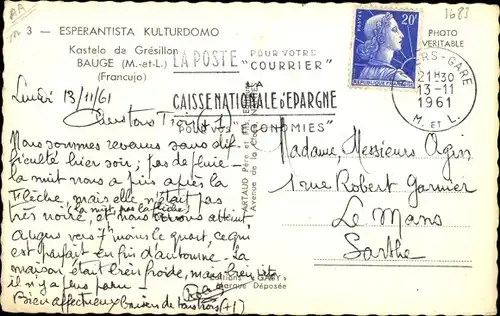 AR
1683
3 — ESPERANTISTA KULTURDOMO
Kastelo de Grésillon
BAUGE (M.-et-L.)
(Francujo)
PHOTO
VERITABLE
20F
REPUBLIQUE FRANÇAISE
LA POSTE POUR VOTRE
"COURRIER"
LA
CAISSE NATIONALE d'EPARGNE
POUR VOS "ECONOMIES"
ERS-GARE
21H30
13-11
1961
M. ET L.
Lundi 13/11/61
Bien tous Trois (+1)
Nous sommes revenus sans dif-
ficulté hier soir ; pas de pluie -
la nuit nous a pris après la
Flèche, mais elle n'était pas
très noire, et nous avons atteint
Angers vers 7 heures le quart, ce qui
est parfait en fin d'automne. La
maison était bien froide, mais bien vite
il n'y a plus paru -
Bien affectueux baisers de tous trois (+1)
Madame, Messieurs Agin
1 rue Robert Garnier
Le Mans
Sarthe
ARTAUD Père et Fils
Avenue de la
Editions "GABY"
Marque Déposée